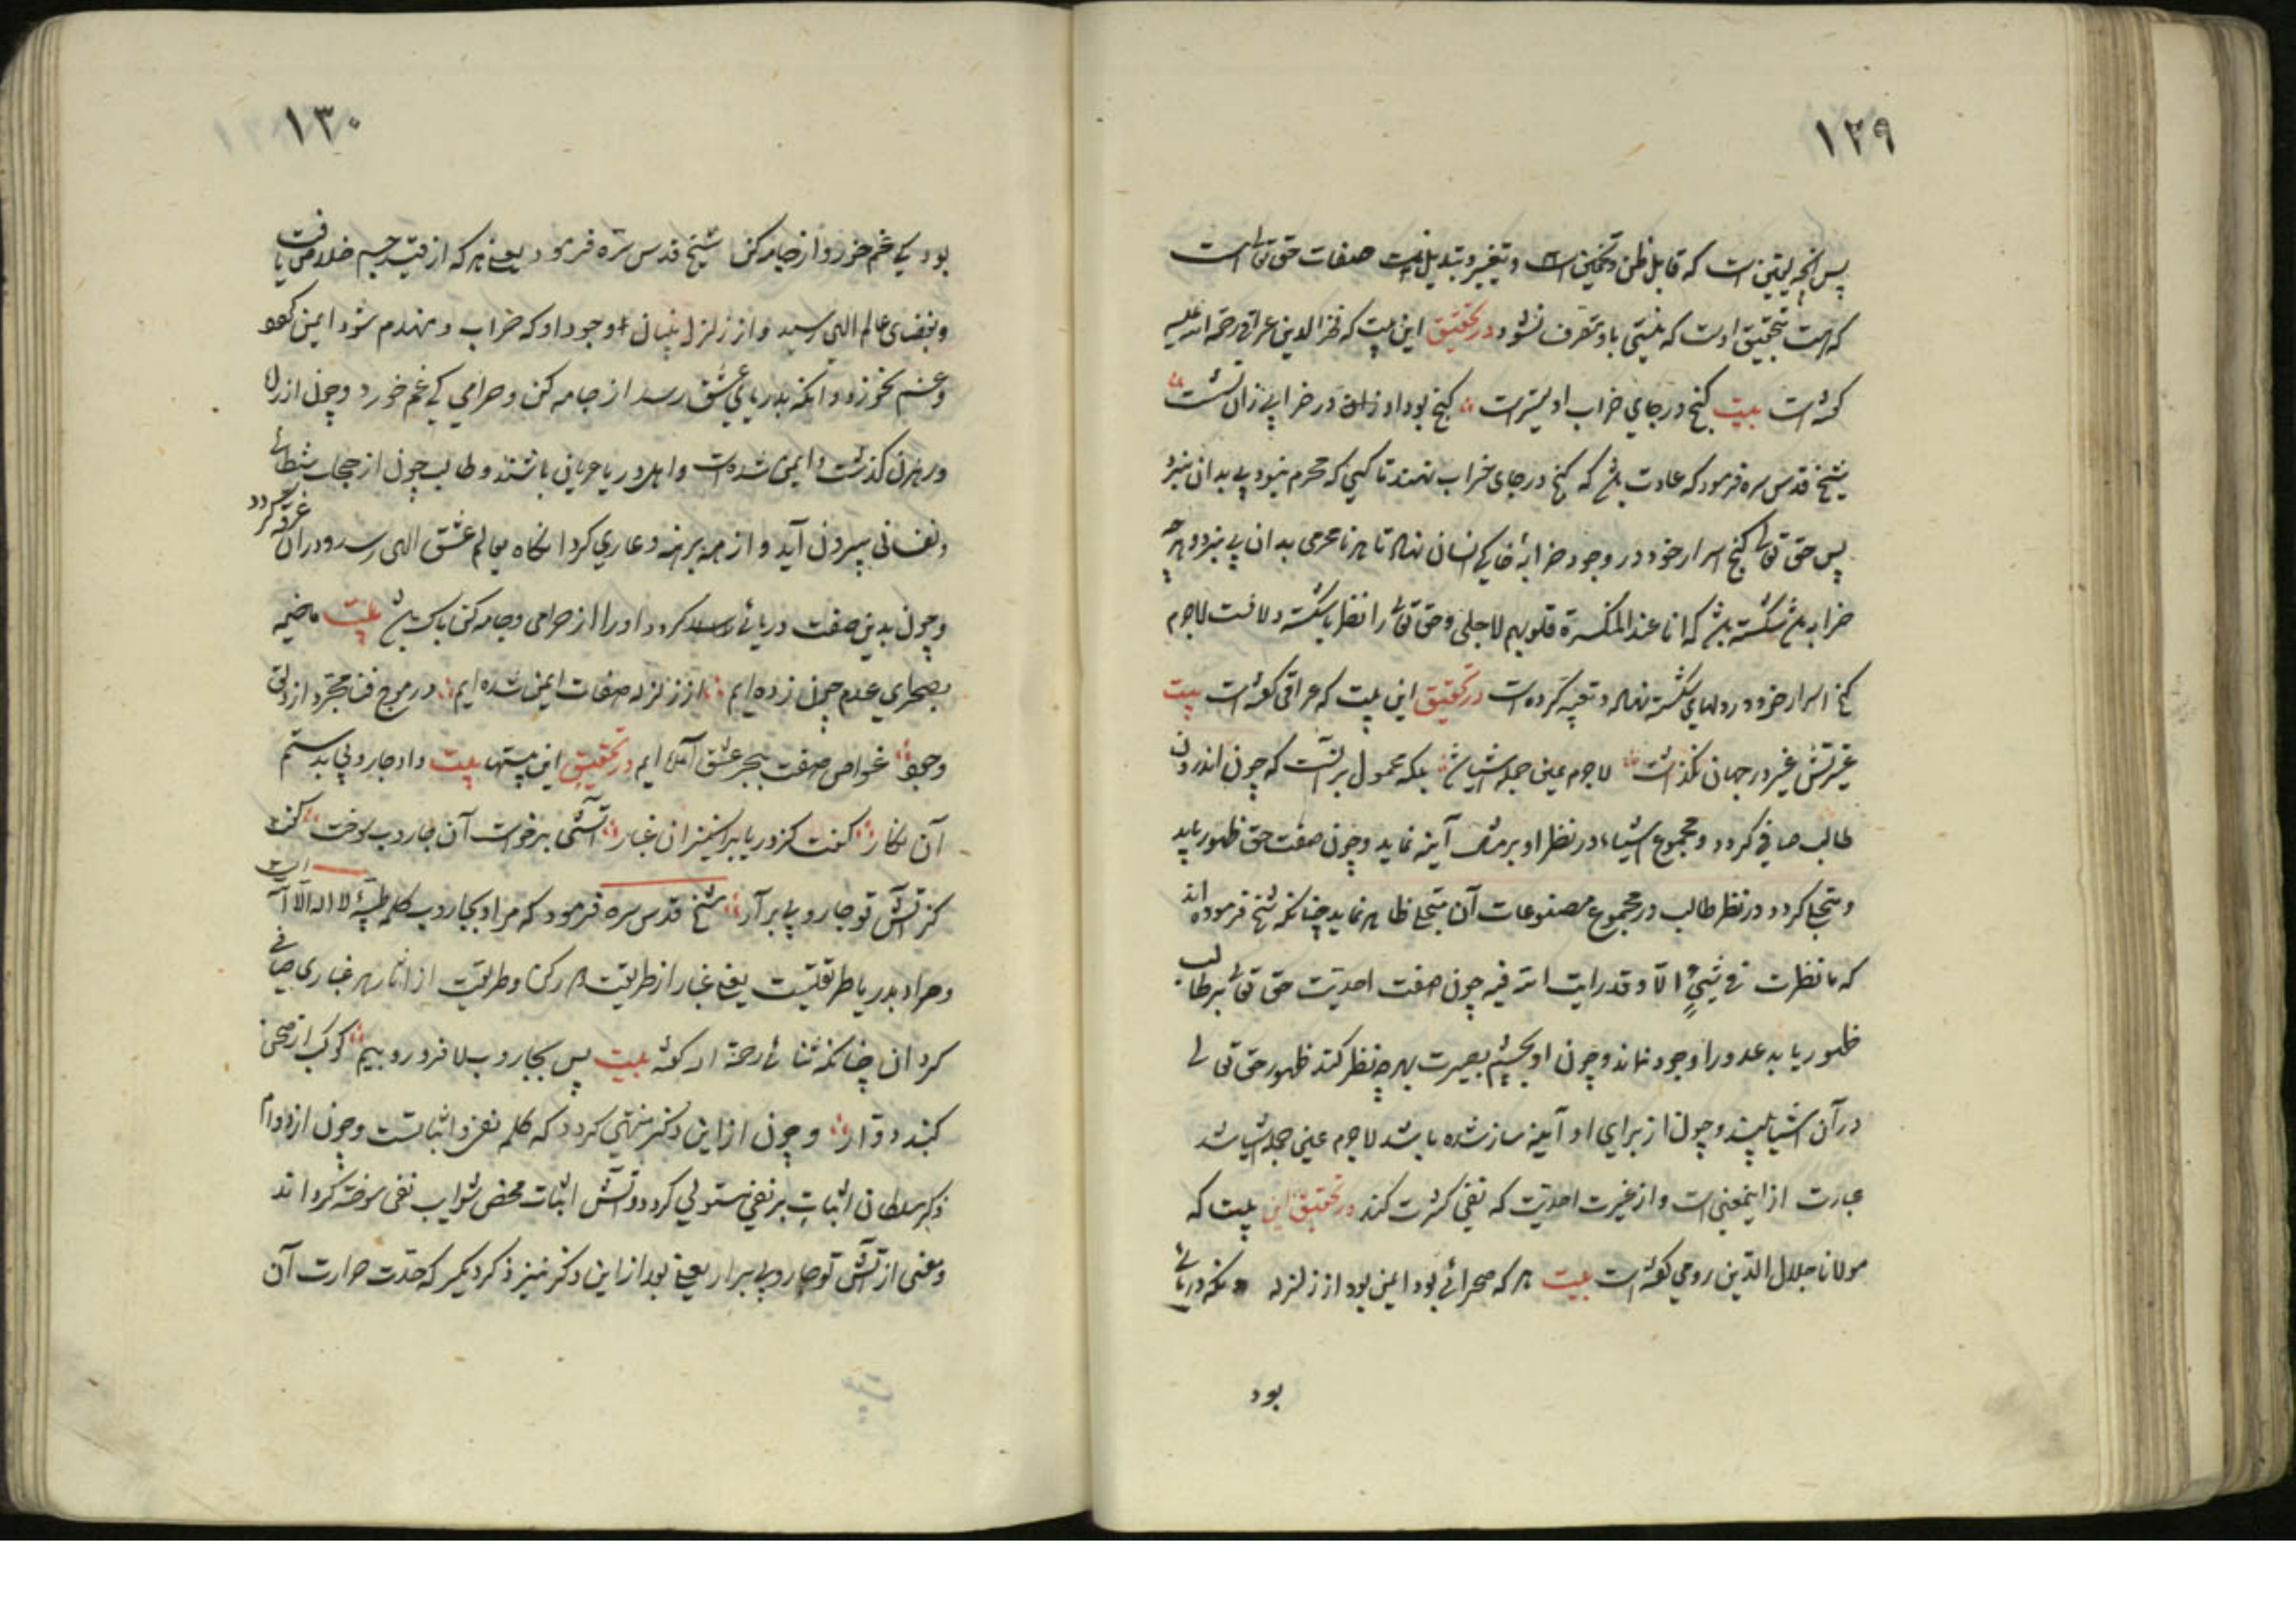 ١٢٩
پس آنچه یقین است که قابل ظن و تخمین است و تغییر و تبدیل نیست صفات حق تعالی است
که هست بتحقیق اوست که نیستی باو متعرف نشود در تحقیق این بیت که فخر الدین عراقی رحمة الله علیه
گفته است بیت گنج در جای خراب اولیتر است گنج بود او زان در خرابی زان نشست
شیخ قدس سره فرمود که عادت باشد که گنج در جای خراب نهند تا کسی که محرم نبود پی بدان نبرد
پس حق تعالی گنج اسرار خود در وجود خرابهٔ خاکی انسان نهاد تا هر نامحرمی بدان پی نبرد و هرچه
خراب باشد شکسته باشد که انا عند المنکسرة قلوبهم لاجلی و حق تعالی را نظر باشکسته دلانست لاجرم
گنج اسرار خود در دلهای شکسته نهاد و تعبیه کرده است در تحقیق این بیت که عراقی گفته است بیت
غیرتش غیر در جهان نگذاشت لاجرم عین جمله اشیا شد بلکه محمول بر آنست که چون اندرون
طالب صافی گردد و مجموع اشیاء در نظر او بر مثال آینه نماید و چون صفت حق ظهور یابد
و متجلی گردد در نظر طالب در مجموع مصنوعات آن متجلی ظاهر نماید چنانکه شیخ فرموده اند
که ما نظرت فی شیءٍ الّا و قد رایت الله فیه چون صفت احدیت حق تعالی بر طالب
ظهور یابد عدو را وجود نماند و چون او بچشم بصیرت بهر چه نظر کند ظهور حق تعالی
در آن اشیا بیند و چون از برای او آیینه ساز شده باشد لاجرم عین جمله اشیا شد
عبارت از اینمعنی است و از غیرت احدیت که نفی کثرت کند در تحقیق این بیت که
مولانا جلال الدین رومی گفته است بیت هر که صحرائی بود ایمن بود از زلزله آنکه دریائی
بود
١٣٠
بود کی غم خورد از جامه کن شیخ قدس سره فرمود یعنی هر که از قید جسم خلاص یافت
و بفضای عالم الهی رسید و از زلزل بنیان وجود او که خراب و منهدم شود ایمن گردد
و غم نخورد و آنکه بدریای عشق رسد از جامه کن و حرامی کی غم خورد و چون از راه
و رهزن گذشت و ایمن شده است و اهل دریا عریان باشند و طالب چون از حجاب شیطانی
و نفسانی بیرون آید و از همه برهنه و عاری گردد آنگاه بعالم عشق الهی رسد و در آن غرق گردد
و چون بدین صفت دریائی گردد او را از حرامی و جامه کن باک باشد بیت ما خیمه
بصحرای عدم چون زده ایم از زلزله صفات ایمن شده ایم در موج فنا مجرد از دلق
وجود غواص صفت ببحر عشق آمده ایم در تحقیق این بیتها بیت داد جاروبی بدستم
آن نگار گفت کز دریا برانگیزان غبار آتشی برخواست آن جاروب سوخت گفت
کز آتش تو جاروبی بر آر شیخ قدس سره فرمود که مراد بجاروب کلمه طیبهٔ لا اله الا الله است
و مراد بدریا طریقتست یعنی غبار از طریقت دور کن و طریقت از آثار هر غباری صافی
گردان چنانکه ثنائی رحمة الله گفته بیت پس بجاروب لا فرو روبیم کوکب از صحن
گنبد دوار و چون از این ذکر منتهی گردد که کلمه نفی و اثباتست و چون از دوام
ذکر سلطان اثبات بر نفی مستولی گردد و آتش اثبات محض شوایب نفی سوخته گرداند
و معنی از آتش تو جاروبی برار یعنی بعد از این ذکر نیز ذکر دیگر که حدت حرارت آن